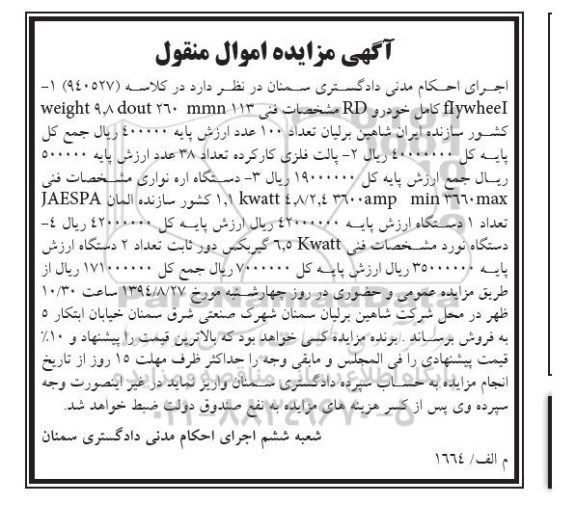 آگهی مزایده اموال منقول
اجرای احکام مدنی دادگستری سمنان در نظر دارد در کلاسه (۹٤۰٥۲۷) ۱-
flywheel کامل خودرو RD مشخصات فنی ۱۱۳ weight ۹,۸ dout ۲۶۰ mmn
کشور سازنده ایران شاهین برلیان تعداد ۱۰۰ عدد ارزش پایه ٤۰۰۰۰۰ ریال جمع کل
پایه کل ٤۰۰۰۰۰۰۰ ریال ۲- پالت فلزی کارکرده تعداد ۳۸ عدد ارزش پایه ٥۰۰۰۰۰
ریال جمع ارزش پایه کل ۱۹۰۰۰۰۰۰ ریال ۳- دستگاه اره نواری مشخصات فنی
۱,۱ kwatt ٤,۸/۲,٤ ۳٦۰۰amp min ۳٦٦۰max کشور سازنده المان JAESPA
تعداد ۱ دستگاه ارزش پایه ٤۲۰۰۰۰۰۰ ریال ارزش پایه کل ٤۲۰۰۰۰۰۰ ریال ٤-
دستگاه نورد مشخصات فنی ٦,٥ Kwatt گیربکس دور ثابت تعداد ۲ دستگاه ارزش
پایه ۳٥۰۰۰۰۰۰ ریال ارزش پایه کل ۷۰۰۰۰۰۰۰ ریال جمع کل ۱۷۱۰۰۰۰۰۰ ریال از
طریق مزایده عمومی و حضوری در روز چهارشنبه مورخ ۱۳۹٤/۸/۲۷ ساعت ۱۰/۳۰
ظهر در محل شرکت شاهین برلیان سمنان شهرک صنعتی شرق سمنان خیابان ابتکار ٥
به فروش برساند. برنده مزایده کسی خواهد بود که بالاترین قیمت را پیشنهاد و ۱۰٪
قیمت پیشنهادی را فی المجلس و مابقی وجه را حداکثر ظرف مهلت ۱٥ روز از تاریخ
انجام مزایده به حساب سپرده دادگستری سمنان واریز نماید در غیر اینصورت وجه
سپرده وی پس از کسر هزینه های مزایده به نفع صندوق دولت ضبط خواهد شد.
شعبه ششم اجرای احکام مدنی دادگستری سمنان
م الف/ ۱٦٦٤
ParsNamadData
پایگاه اطلاع رسانی مناقصه و مزایده
۰۲۱-۸۸۳٤۹٦۷۰-٥